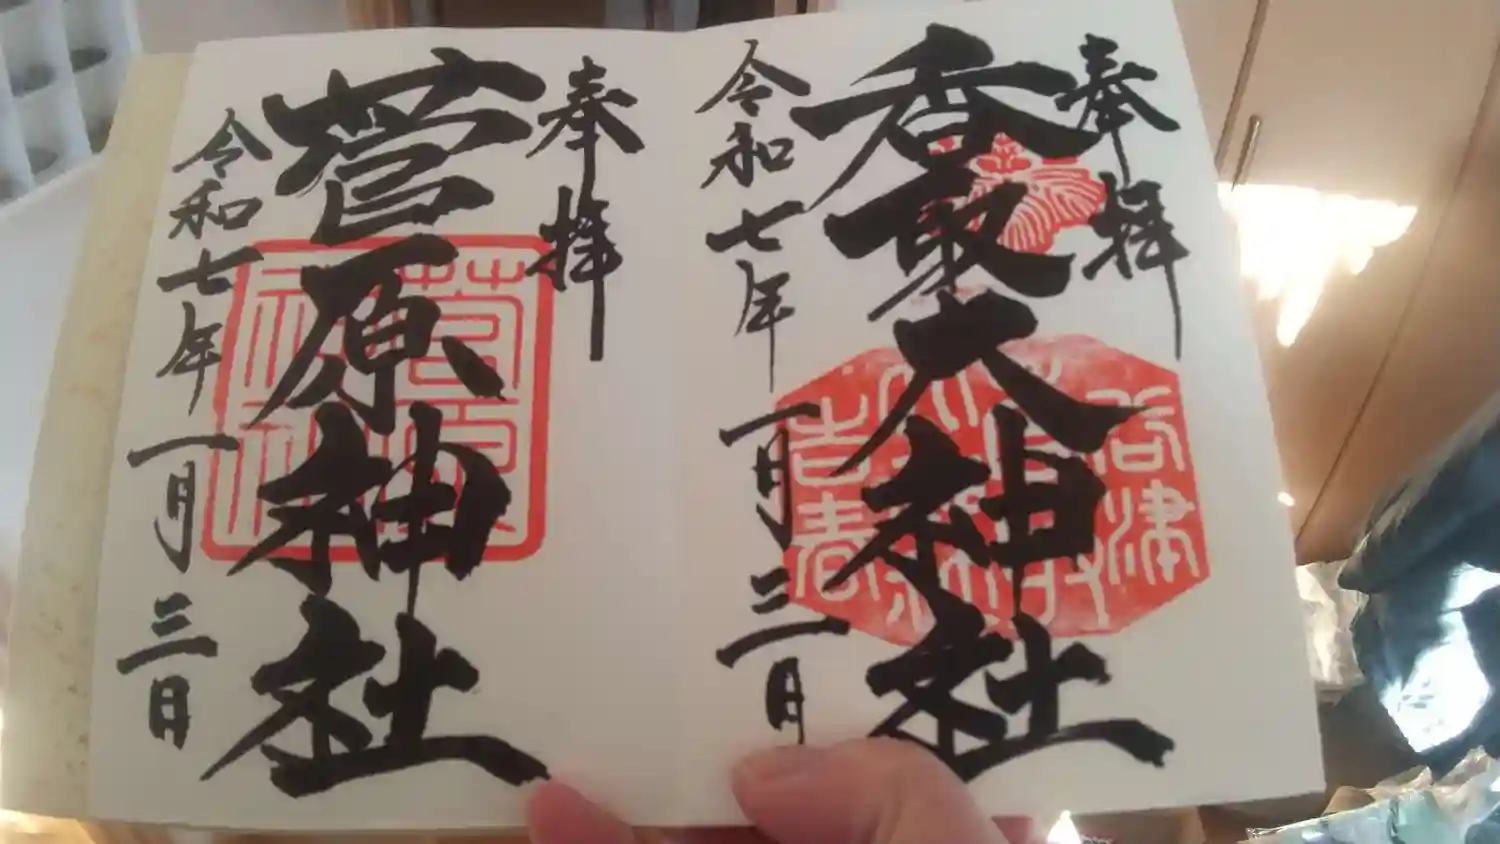 奉拝
香取大神社
令和七年一月三日
奉拝
菅原神社
令和七年一月三日
菅原神社